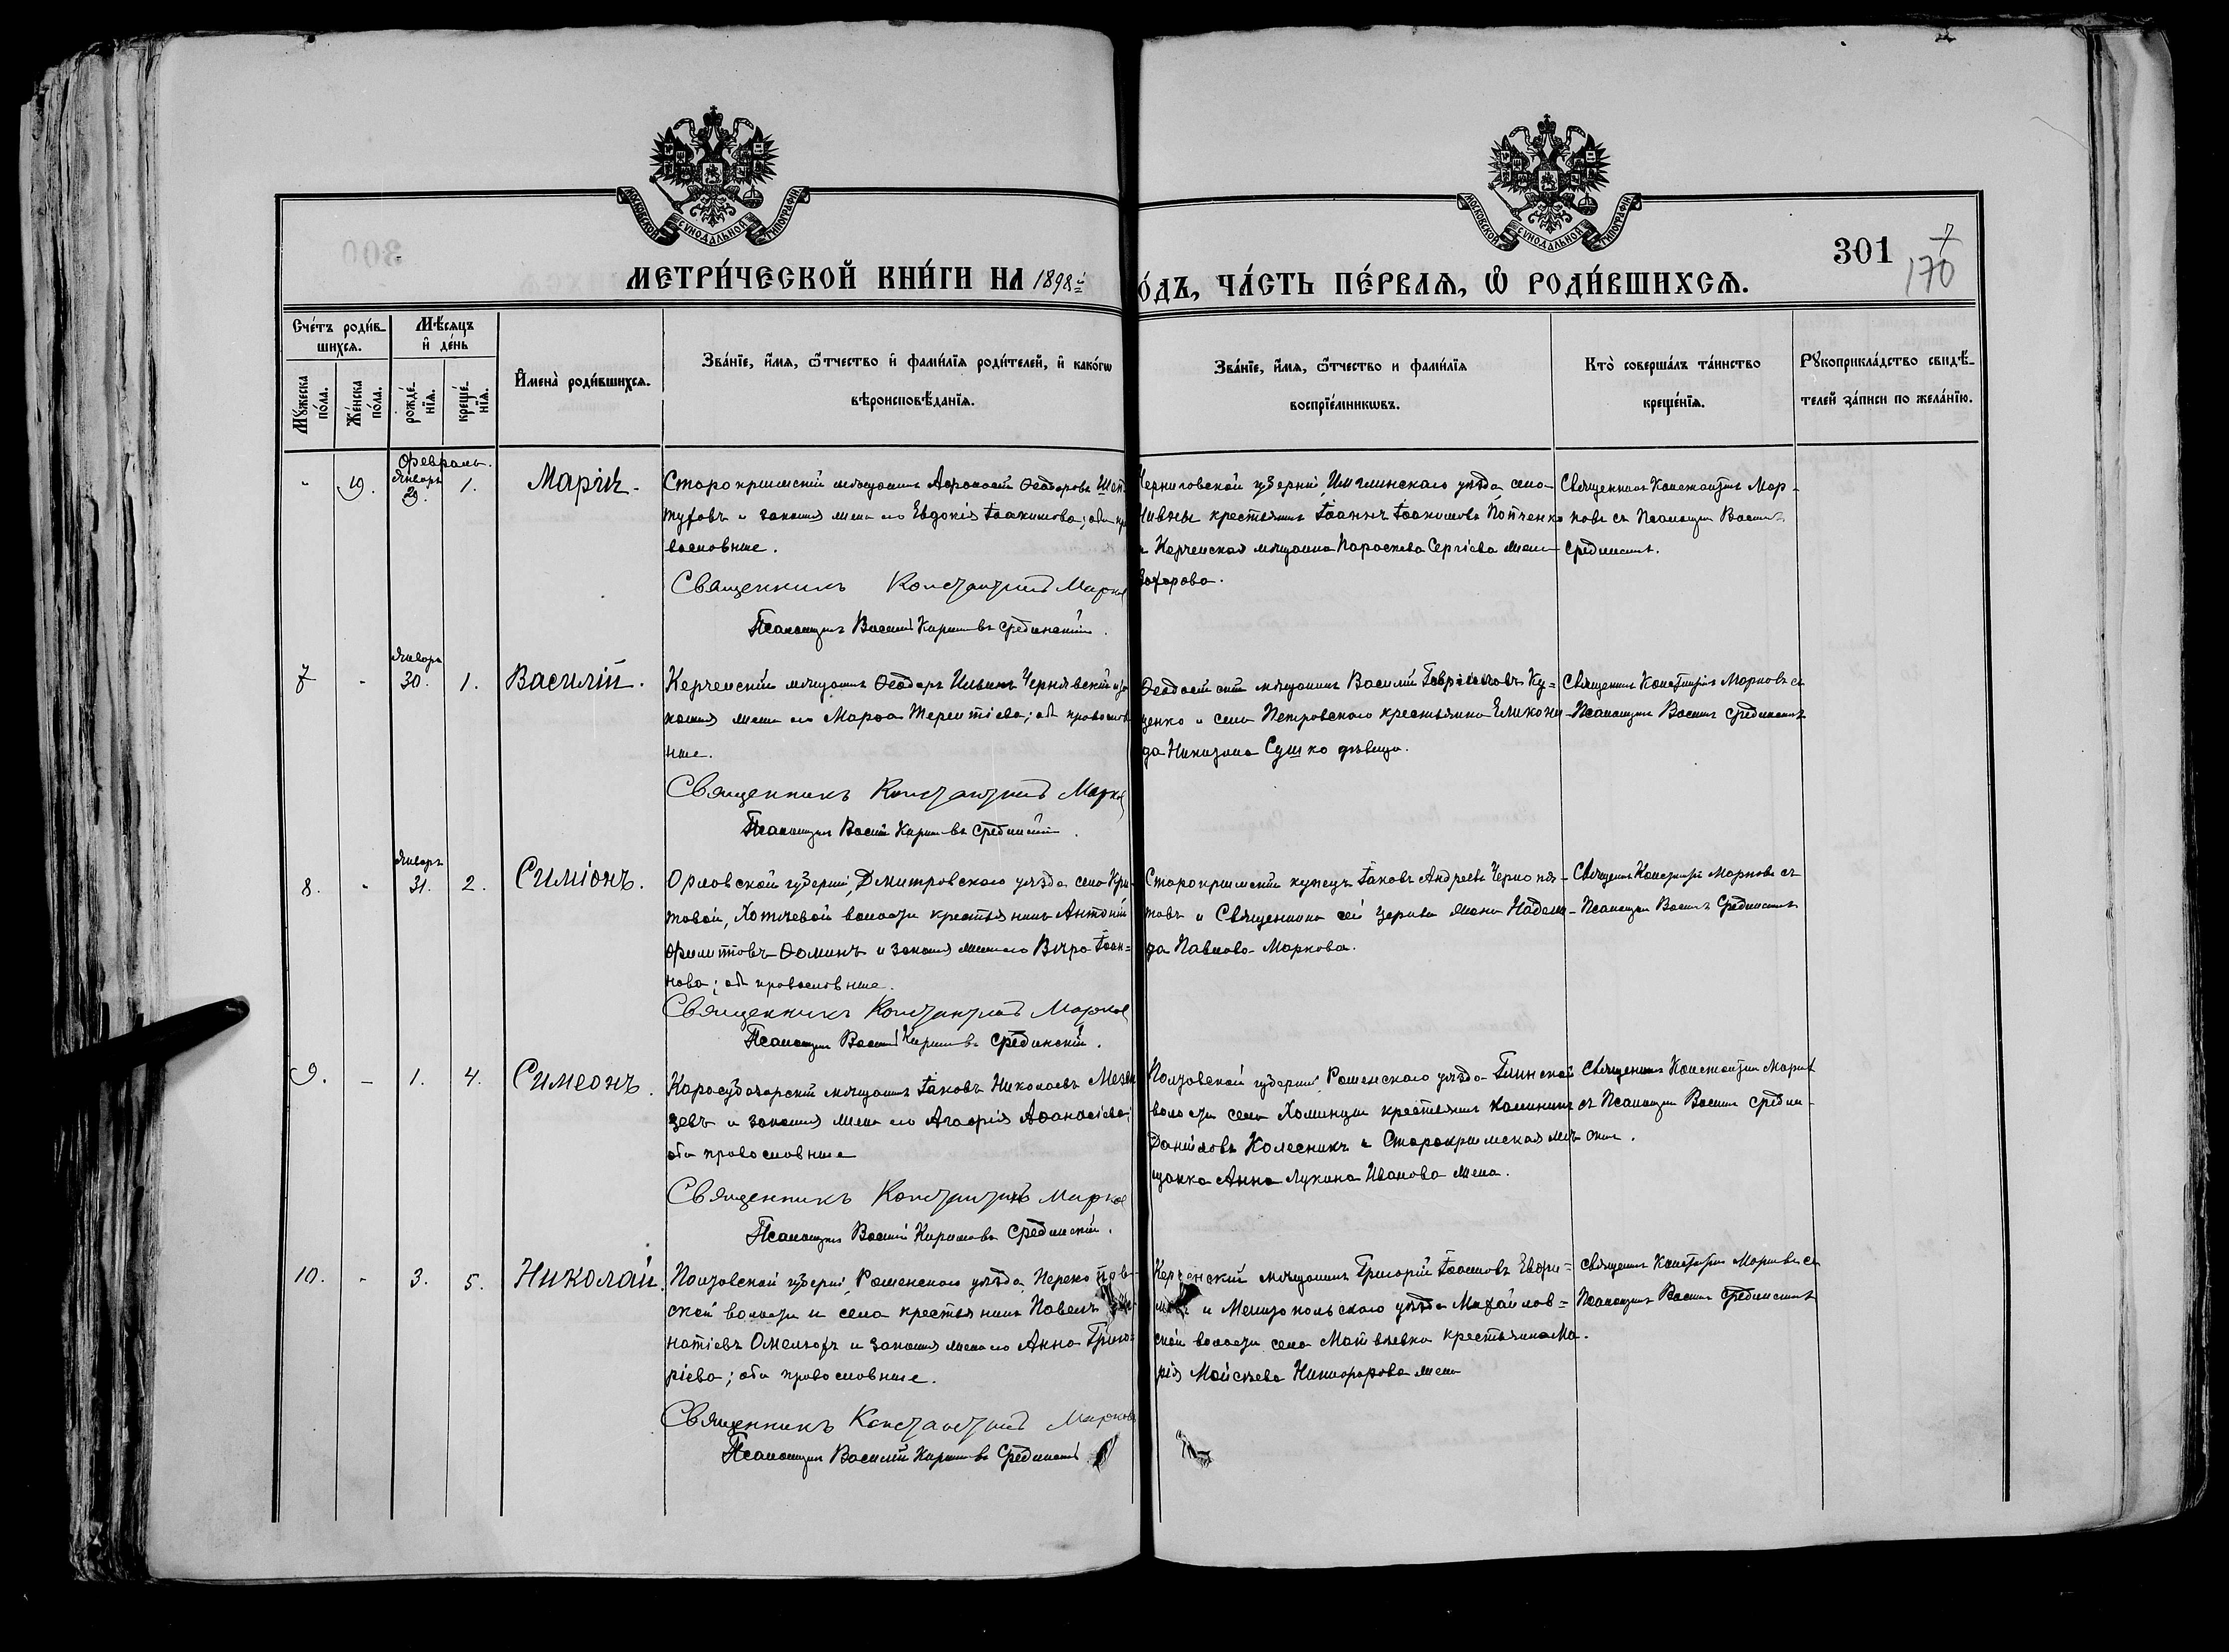 МОСКОВСКОЙ СѴНОДАЛЬНОЙ ТИПОГРАФІИ
МОСКОВСКОЙ СѴНОДАЛЬНОЙ ТИПОГРАФІИ
300
301
170
МЕТРИ́ЧЕСКОЙ КНИ́ГИ НА 1898й
О́ДЪ, ЧА́СТЬ ПЕ́РВАЯ, Ѡ РОДИ́ВШИХСЯ.
Сче́тъ роди́в-
шихсѧ.
Мѣ́сѧцъ
и҆ де́нь
Мꙋ́жеска
по́ла.
Же́нска
по́ла.
рожде́-
нїѧ.
креще́-
нїѧ.
И҆мена̀ роди́вшихсѧ.
Зва́нїе, и҆́мѧ, ѻ҆́тчество и҆ фами́лїѧ роди́телей, и҆ како́гѡ
вѣроисповѣ́данїѧ.
Зва́нїе, и҆́мѧ, ѻ҆́тчество и фами́лїѧ
воспрїе́мникѡвъ.
Кто̀ соверша́лъ та́инство
креще́нїѧ.
Рꙋкоприкла́дство свидѣ́-
телей за́писи по жела́нїю.
Февраль.
Январь
29.
19.
1.
Марія.
Старокрымскій мѣщанинъ Афанасій Ѳеодоровъ Шеп
туховъ и законная жена его Евдокія Іоакимова; оба пра
вославные.
Священникъ Константинъ Марков
Псаломщикъ Василій Кириловъ Срединскій.
Черниговской губерніи, Мглинскаго уѣзда, села
Нивны крестьянинъ Іоаннъ Іоакимовъ Попченко
и Керченская мѣщанка Параскева Сергіева жена
Захарова.
Священникъ Константинъ Мар-
ковъ съ Псаломщик. Василь.
Срединскимъ.
7
Январь
30.
1.
Василій.
Керченскій мѣщанинъ Ѳеодоръ Ильинъ Чернявскій и за
конная жена его Марфа Терентіева; оба православ
ные.
Священникъ Константинъ Марков
Псаломщикъ Василій Кириловъ Срединскій.
Ѳеодосійскій мѣщанинъ Василій Гавриловъ Ку=
ценко и села Петровскаго крестьянка Еликони
да Никитина Сушко дѣвица.
Священникъ Константинъ Марковъ съ
Псаломщик. Василь. Срединскимъ
8.
Январь
31.
2.
Симіонъ.
Орловской губерніи, Дмитровскаго уѣзда села Кру
товой, Хотчевой волости крестьянинъ Антоній
Филиповъ Ѳоминъ и законная жена его Вѣра Іоан=
нова; оба православные.
Священникъ Константинъ Марков
Псаломщикъ Василій Кириловъ Срединскій.
Старокрымскій купецъ Іаковъ Андреевъ Чернопя-
товъ и Священника сей церкви жена Надеж-
да Павлова Маркова.
Священникъ Константинъ Марковъ съ
Псаломщик. Василь. Срединскимъ
9.
1.
4.
Симеонъ.
Карасубазарскій мѣщанинъ Іаковъ Николаевъ Мезен
цевъ и законная жена его Агафія Аѳанасіева;
оба православные
Священникъ Константинъ Марков
Псаломщикъ Василій Кириловъ Срединскій.
Полтавской губерніи, Роменскаго уѣзда Глинской
волости села Хоминцы крестьянинъ Калиникъ
Даніиловъ Колесникъ и Старокрымская мѣ-
щанка Анна Лукина Иванова жена.
Священникъ Константинъ Марковъ
съ Псаломщик. Василь. Средин-
скимъ.
10.
3.
5.
Николай.
Полтавской губерніи, Роменскаго уѣзда, Перекопов-
ской волости и села крестьянинъ Павелъ Иг-
натіевъ Омельяхъ и законная жена его Анна Григо=
ріева; оба православные.
Священникъ Константинъ Марковъ
Псаломщикъ Василій Кириловъ Срединскій
Керченскій мѣщанинъ Григорій Іоанновъ Ефи=
и Мелитопольскаго уѣзда Михайлов=
ской волости села Матвѣевка крестьянка Ма-
рія Моисѣева Никифорова жена
Священникъ Константинъ Марковъ съ
Псаломщик. Василь. Срединскимъ